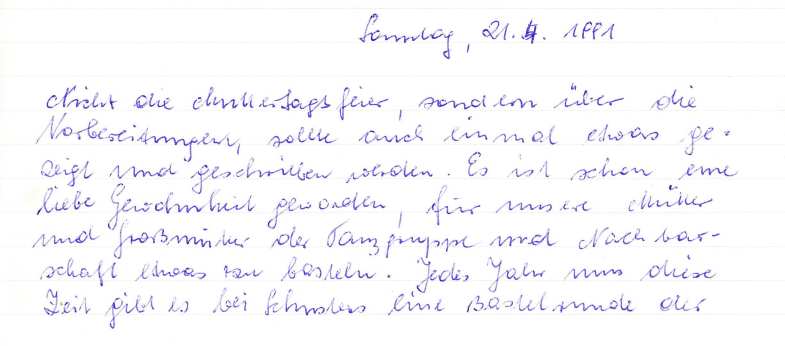 Sonntag, 21.4. 1991
Nicht die Muttertagsfeier, sondern über die
Vorbereitungen, sollte auch einmal etwas ge-
zeigt und geschrieben werden. Es ist schon eine
liebe Gewohnheit geworden, für unsere Mütter
und Großmütter der Tanzgruppe und Nachbar-
schaft etwas zu basteln. Jedes Jahr um diese
Zeit gibt es bei Schusters eine Bastelrunde der